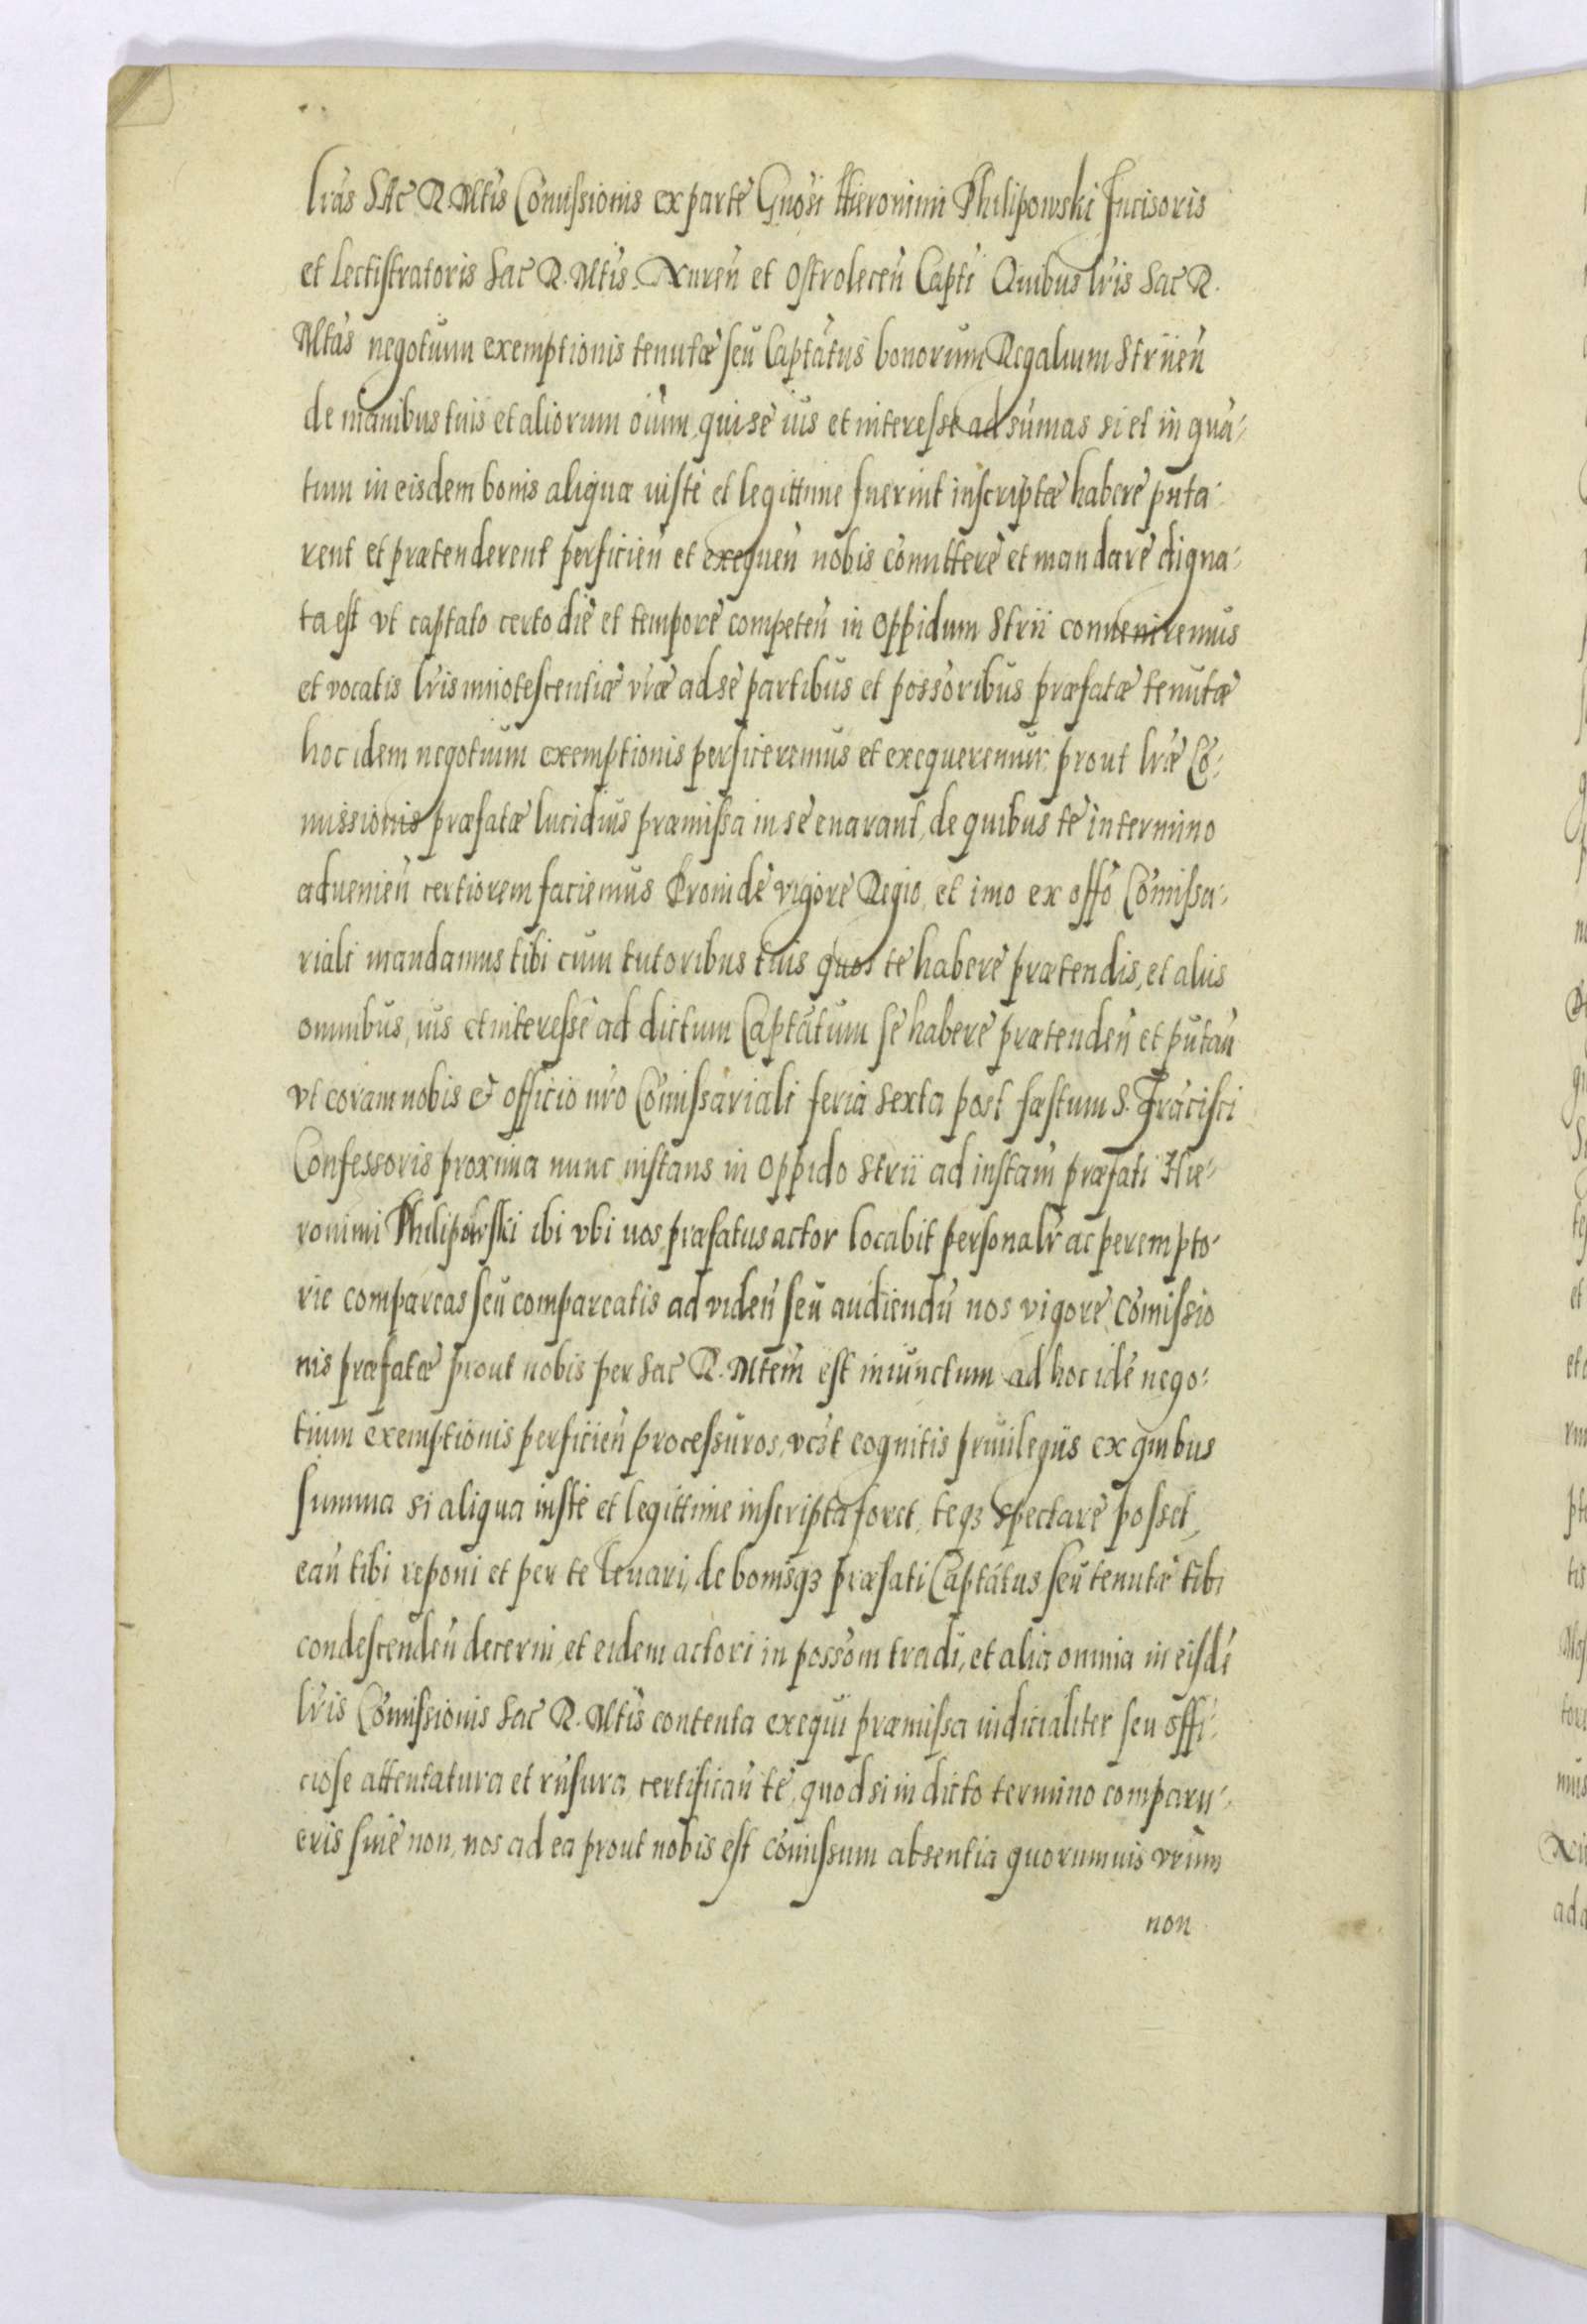 lras SAc R. Mtis Comissionis ex parte Gnosi Hieronimi Philipowski Incisoris
et Lectistratoris Sac R. Mtis. Xnren et Ostrolecen Capti Quibus lris Sac R.
Mtas negotium exemptionis tenutæ seu Captatus bonorum Regalium Striien
de manibus tuis et aliorum oium, qui se ius et interesse ad sumas si et in qua-
tum in eisdem bonis aliquæ iuste et legittime fuerint inscriptæ habere puta-
rent et prætenderent perficien et exequen nobis comittere et mandare digna-
ta est vt captato certo die et tempore competen in Oppidum Strii conueniremus
et vocatis lris innotescentiæ vræ ad se partibus et possoribus præfatæ tenutæ
hoc idem negotium exemptionis perficeremus et exequeremur. prout lræ Co-
missionis præfatæ lucidius præmissa in se enarant, de quibus te in termino
aduenien certiorem faciemus Proinde vigore Regio, et imo ex offo Comissa-
riali mandamus tibi cum tutoribus tuis quos te habere prætendis, et aliis
omnibus, ius et interesse ad dictum Captatum se habere prætenden et putan
vt coram nobis & officio nro Comissariali feria sexta post fæstum S. Fracisci
Confessoris proxima nunc instans in Oppido Strii ad instam præfati Hie-
ronimi Philipowski ibi vbi nos præfatus actor locabit personalr ac perempto-
rie compareas seu compareatis ad viden seu audiendu nos vigore Comissio
nis præfatæ prout nobis per Sac R. Mtem est iniunctum ad hoc ide nego-
tium exemptionis perficien processuros, vcit cognitis priuilegiis ex quibus
summa si aliqua iuste et legittime inscripta foret, teqз spectare posset,
ean tibi reponi et per te leuari, de bonisqз præfati Captatus seu tenutæ tibi
condescenden decerni, et eidem actori in possom tradi, et alia omnia in eisde
lris Comissionis Sac R. Mtis contenta exequi præmissa iudicialiter seu offi-
ciose attentatura et rusura, certifican te, quod si in dicto termino comparu-
eris siue non, nos ad ea prout nobis est comissum absentia quorumuis vrum
non